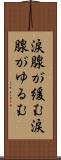 涙腺が緩む涙
腺がゆるむ